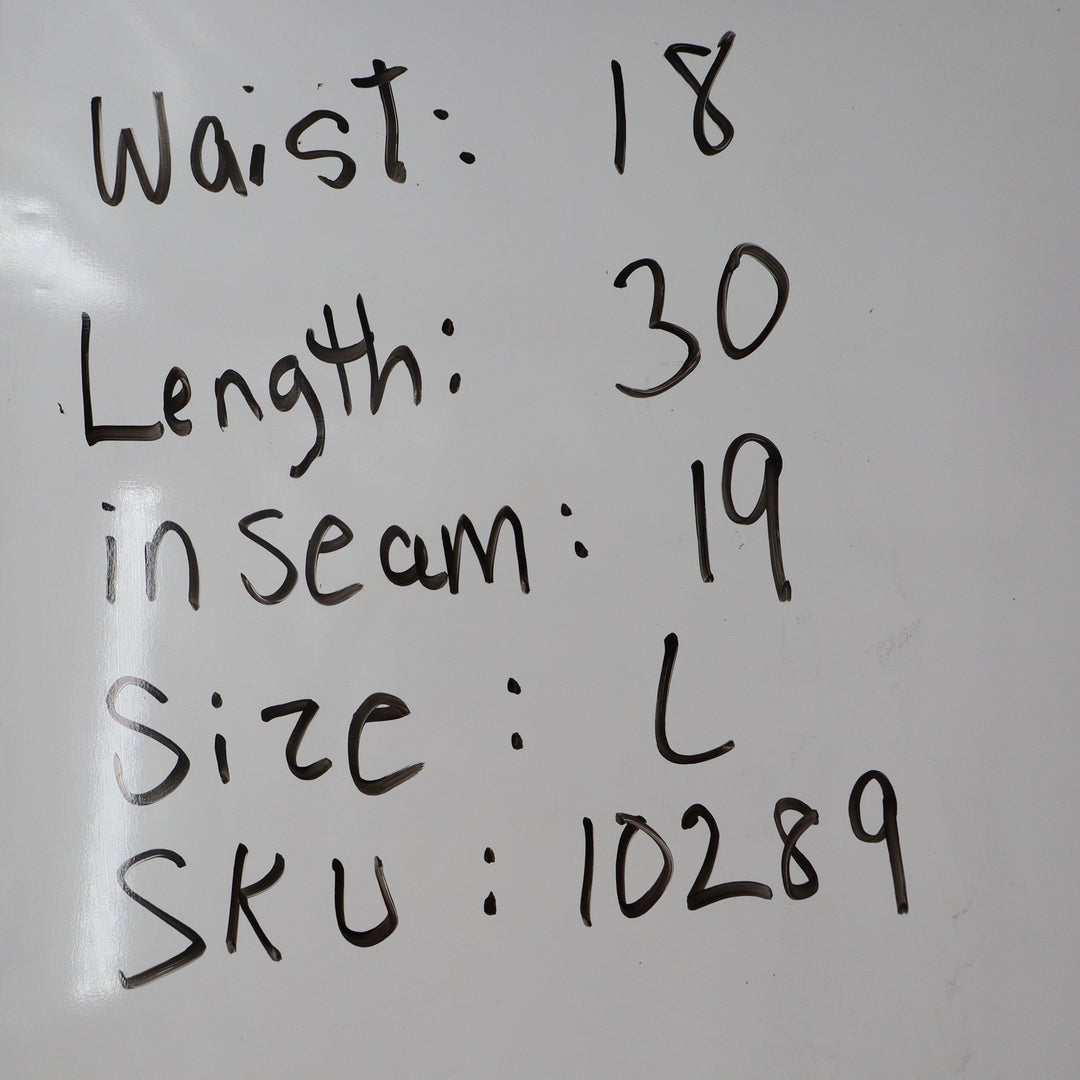 Waist: 18
Length: 30
inseam: 19
Size: L
SKU: 10289